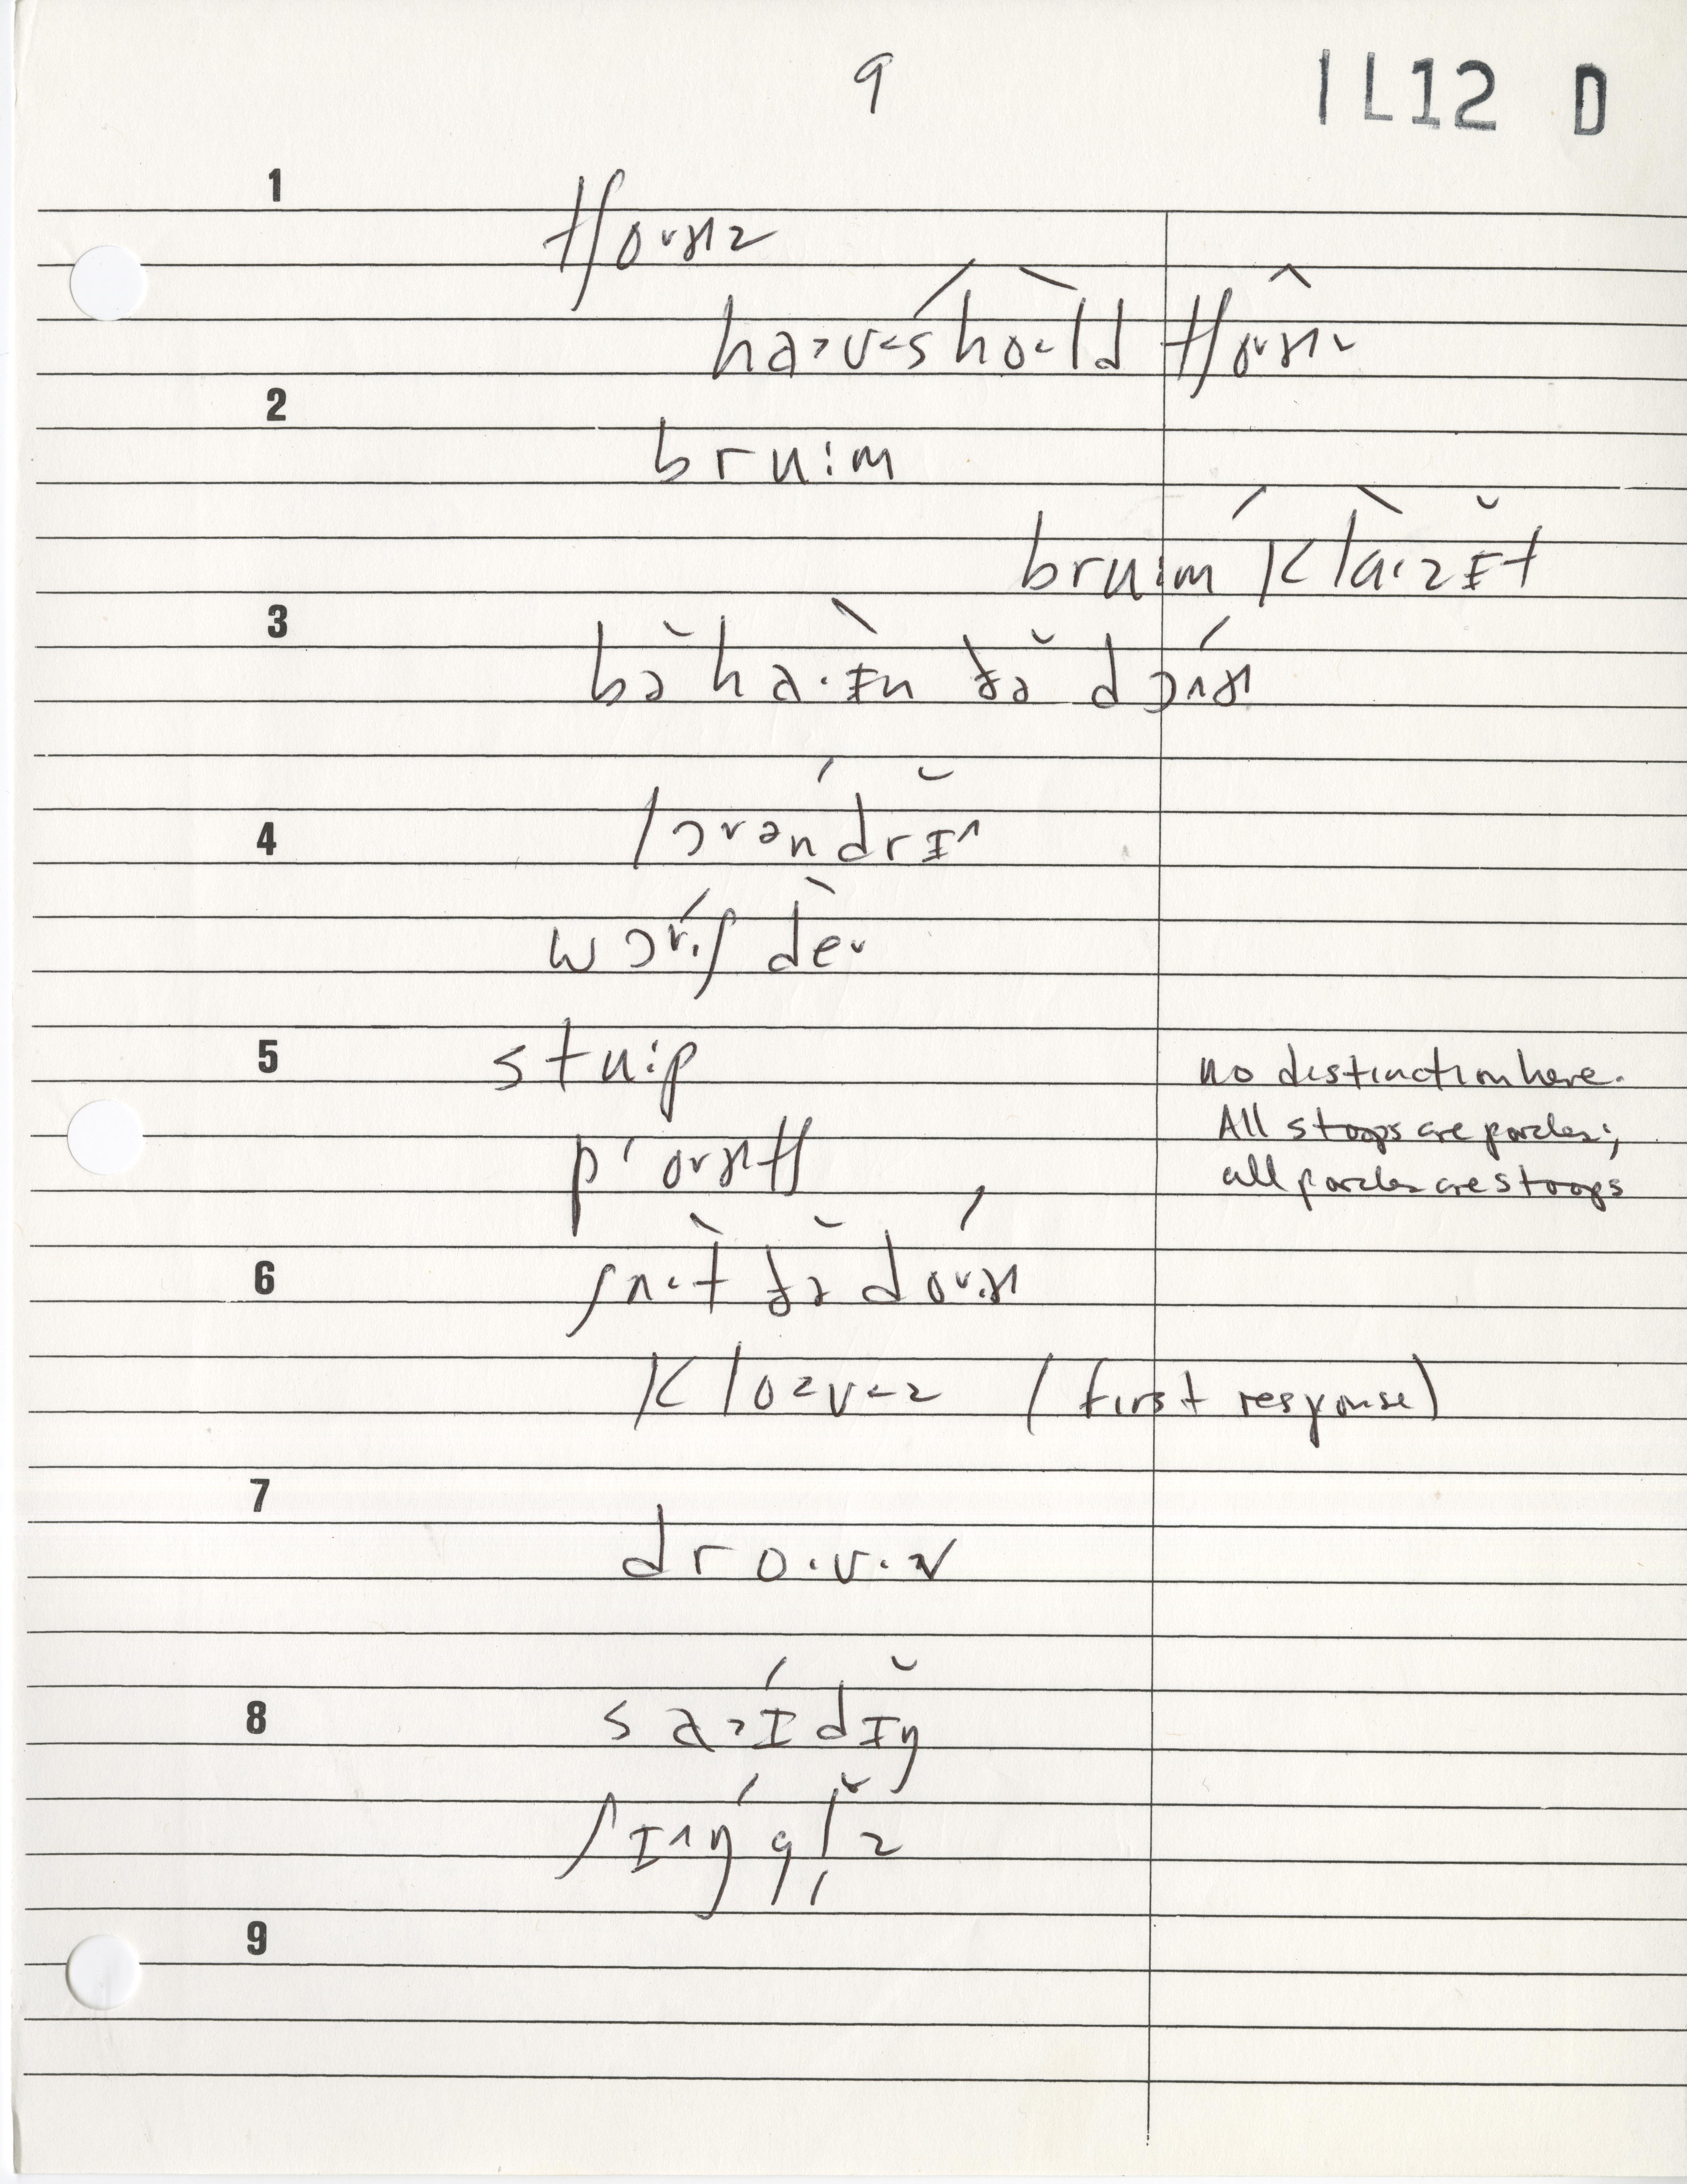 9
1L12 D
1
tʃo˞ɚz
ha>v<shold tʃoɚz
2
bru:m
bru:m kla.zɪt
3
bəha·ɪn ðə dɔ˄ɚ
4
lɔ˅əndrɪ˄
wɔɚ.ʃ de˅
5
stu:p
no distinction here.
pʻo˅ɚtʃ
All stoops are porches;
all porches are stoops
6
ʃʌ·t ðə do˅.ɚ
klo<v<z (first response)
7
dro·v·z
8
sa>ɪdɪŋ
ʃɪ˄ŋgl̩z
9